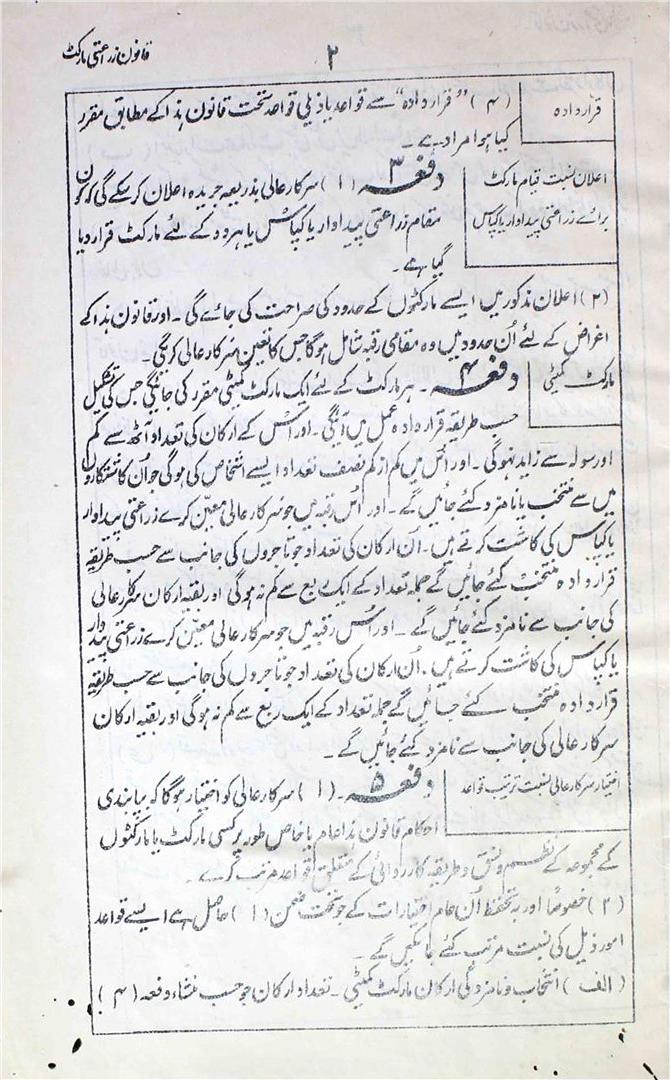 قانون زراعتی مارکٹ
۲
قرار دادہ
(۴) "قرار دادہ" سے قواعد یا ذیلی قواعد تحت قانون ہذا کے مطابق مقرر
کیا ہوا مراد ہے۔
اعلان نسبت قیام مارکٹ
برائے زراعتی پیداوار یا کپاس
دفعہ ۳ (۱) سرکار عالی بذریعہ جریدہ اعلان کر سکے گی کہ کون
مقام زراعتی پیداوار یا کپاس یا ہر دو کے لئے مارکٹ قرار دیا
گیا ہے۔
(۲) اعلان مذکور میں ایسے مارکٹوں کے حدود کی صراحت کی جائے گی۔ اور قانون ہذا کے
اغراض کے لئے اُن حدود میں وہ مقامی رقبہ شامل ہوگا جس کا تعین سرکار عالی کرےگی
مارکٹ کمیٹی
دفعہ ۴۔ ہر مارکٹ کے لئے ایک مارکٹ کمیٹی مقرر کی جائیگی جس کی تشکیل
حسب طریقہ قرار دادہ عمل میں آئیگی۔ اور اُس کے ارکان کی تعداد آٹھ سے کم
اور سولہ سے زاید نہوگی۔ اور اس میں کم از کم نصف تعداد ایسے اشخاص کی ہوگی جو اُن کاشتکاروں
میں سے منتخب یا نامزد کئے جائیں گے۔ اور اُس رقبہ میں جو سرکار عالی معین کرے زراعتی پیداوار
یا کپاس کی کاشت کرتے ہیں۔ اُن ارکان کی تعداد جو تاجروں کی جانب سے حسب طریقہ
قرار دادہ منتخب کئے جائیں گے جملہ تعداد کے ایک ربع سے کم نہ ہوگی اور بقیہ ارکان سرکار عالی
کی جانب سے نامزد کئے جائیں گے۔ اور اُس رقبہ میں جو سرکار عالی معین کرے زراعتی پیداوار
یا کپاس کی کاشت کرتے ہیں۔ اُن ارکان کی تعداد جو تاجروں کی جانب سے حسب طریقہ
قرار دادہ منتخب کئے جائیں گے جملہ تعداد کے ایک ربع سے کم نہ ہوگی اور بقیہ ارکان
سرکار عالی کی جانب سے نامزد کئے جائیں گے۔
اختیار سرکار عالی نسبت ترتیب قواعد
دفعہ ۵۔ (۱) سرکار عالی کو اختیار ہوگا کہ بپابندی
احکام قانون ہذا عام یا خاص طور پر کسی مارکٹ یا مارکٹوں
کے مجموعہ کے نظم و نسق و طریقہ کارروائی کے متعلق قواعد مرتب کرے۔
(۲) خصوصاً اور بہ تحفظ اُن عام اختیارات کے جو تحت ضمن (۱) حاصل ہے ایسے قواعد
امور ذیل کی نسبت مرتب کئے جا سکیں گے۔
(الف) انتخاب و نامزدگی ارکان مارکٹ کمیٹی۔ تعداد ارکان جو حسب منشاء دفعہ (۴)